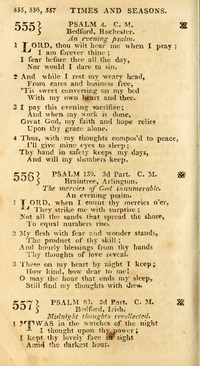 555, 556, 557 TIMES AND SEASONS.
555} PSALM 4. C. M.
Bedford, Rochester.
An evening psalm.
1 LORD, thou wilt hear me when I pray;
I am forever thine;
I fear before thee all the day,
Nor would I dare to sin.
2 And while I rest my weary head,
From cares and business free,
'Tis sweet conversing on my bed
With my own heart and thee.
3 I pay this evening sacrifice;
And when my work is done,
Great God, my faith and hope relies
Upon thy grace alone.
4 Thus, with my thoughts compos'd to peace,
I'll give mine eyes to sleep;
Thy hand in safety keeps my days,
And will my slumbers keep.
556} PSALM 139. 3d Part. C. M.
Braintree, Arlington.
The mercies of God innumerable.
An evening psalm.
1 LORD, when I count thy mercies o'er,
They strike me with surprise;
Not all the sands that spread the shore,
To equal numbers rise.
2 My flesh with fear and wonder stands,
The product of thy skill;
And hourly blessings from thy hands
Thy thoughts of love reveal.
3 These on my heart by night I keep;
How kind, how dear to me!
O may the hour that ends my sleep,
Still find my thoughts with thee.
557} PSALM 63. 2d Part. C. M.
Bedford, Irish.
Midnight thoughts recollected.
1 'TWAS in the watches of the night
I thought upon thy power;
I kept thy lovely face in sight
Amid the darkest hour.